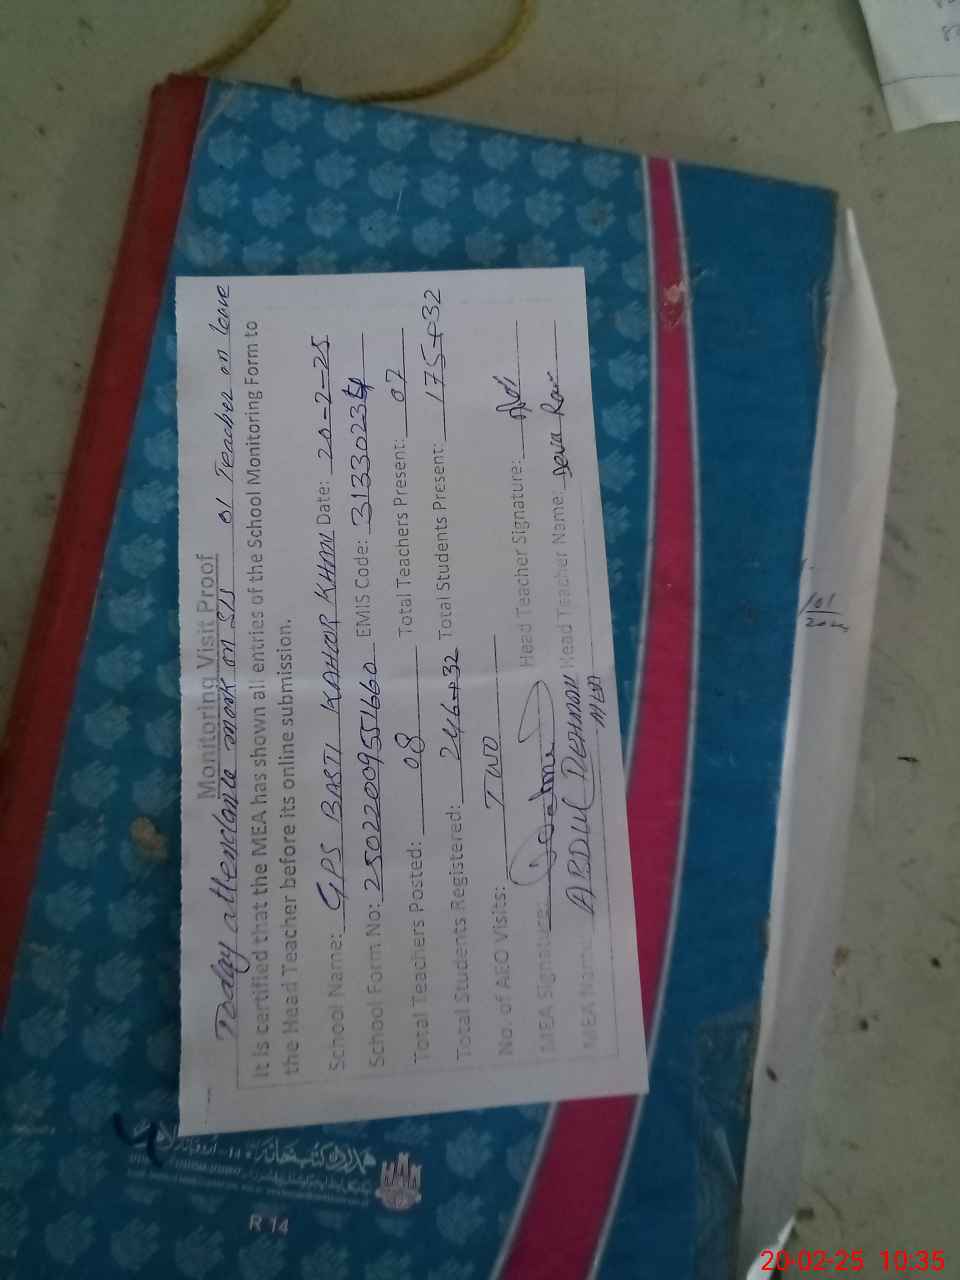 Monitoring Visit Proof
Today attendance mark on SIS 01 Teacher on leave
It is certified that the MEA has shown all entries of the School Monitoring Form to
the Head Teacher before its online submission.
School Name: GPS BASTI KAHOOR KHAN Date: 20-2-25
School Form No: 25022009551660 EMIS Code: 31330234
Total Teachers Posted: 08 Total Teachers Present: 07
Total Students Registered: 246+32 Total Students Present: 175+32
No. of AEO Visits: TWO
MEA Signature: Head Teacher Signature:
MEA Name: ABDUL REHMAN Head Teacher Name: Deva Ram
MEA
R 14
20-02-25 10:35